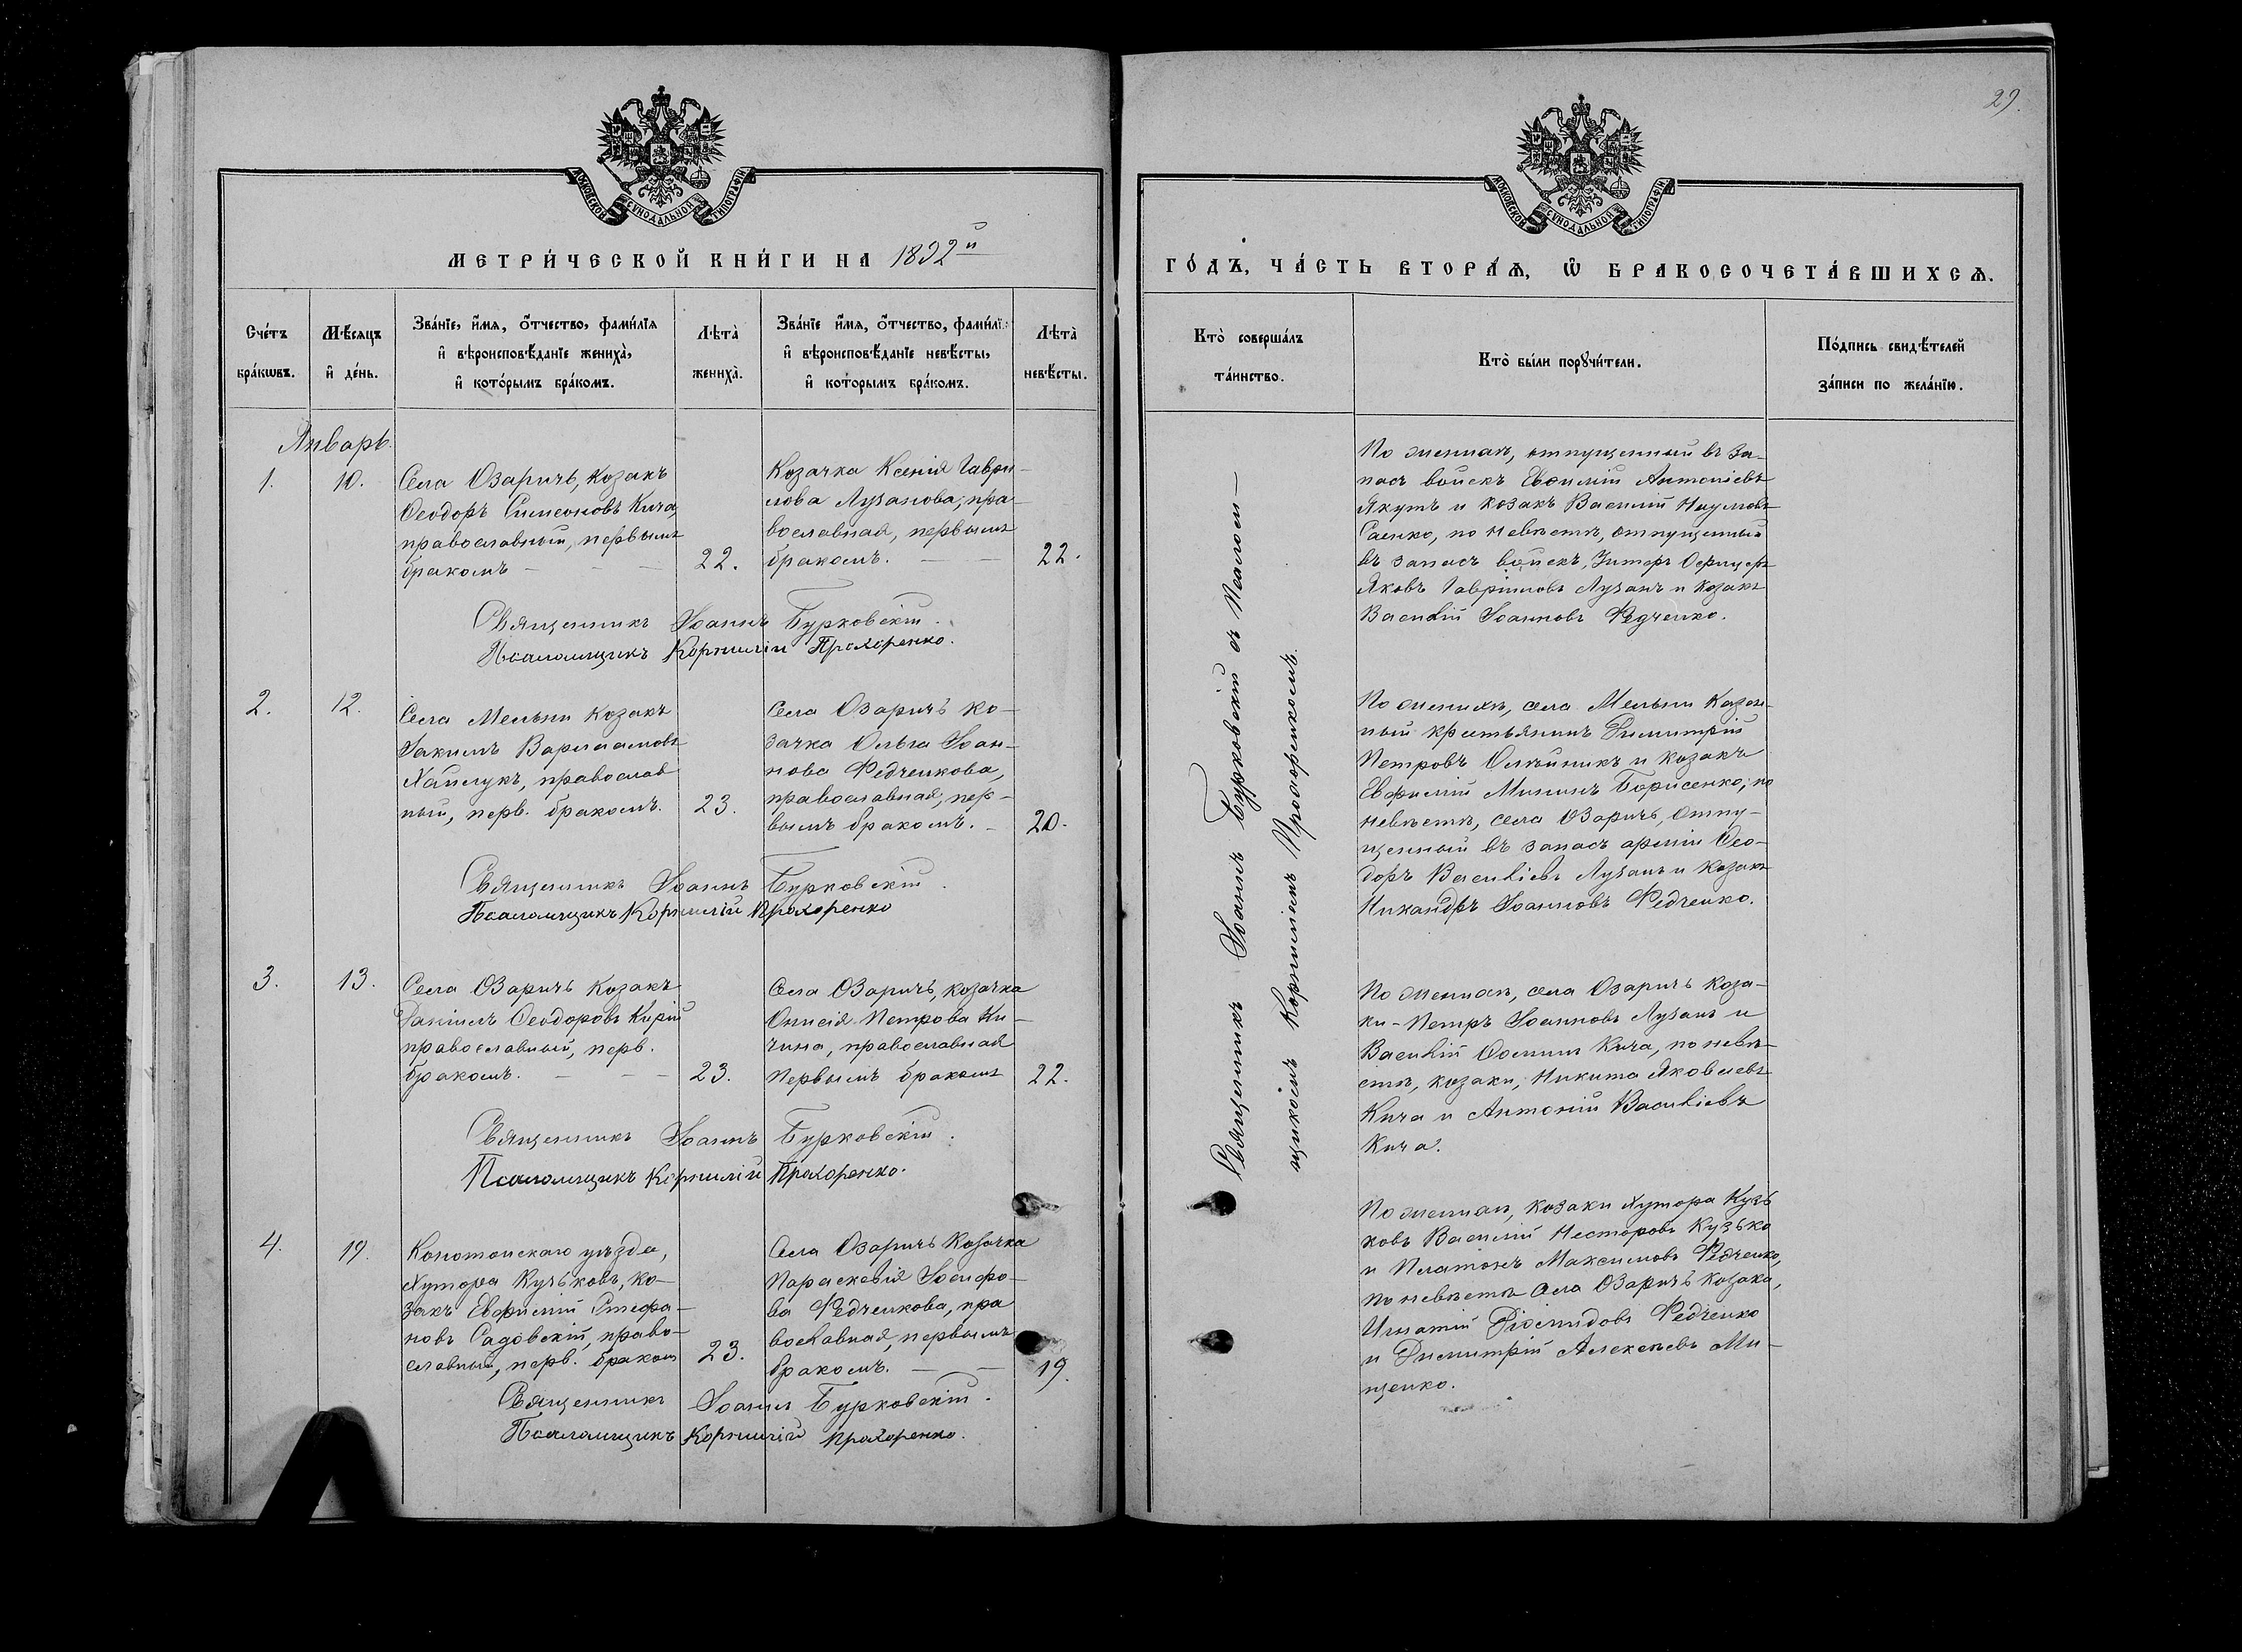 29.
МОСКОВСКОЙ СѴНОДАЛЬНОЙ ТИПОГРАФІИ
МЕТРИ́ЧЕСКОЙ КНИ́ГИ НА 1892й
Сче́тъ бра́кѡвъ.
Мѣ́сяцъ и҆ де́нь.
Зва́нїе, и҆́мя, ѻ҆́тчество, фами́лїя
и҆ вѣроисповѣ́данїе жениха̀,
и҆ кото́рымъ бра́комъ.
Лѣ́та̀ жениха̀.
Зва́нїе и҆́мя, ѻ҆́тчество, фами́лї:
и҆ вѣроисповѣ́данїе невѣ́сты,
и҆ которымъ бра́комъ.
Лѣ́та̀ невѣ́сты.
Январь.
1.
10.
Села Озаричъ, Козакъ
Ѳеодоръ Симеоновъ Кича,
православный, первымъ
бракомъ — — —
22.
Козачка Ксенія Гаври-
лова Лузанова, пра-
вославная, первымъ
бракомъ. — —
22.
Священникъ Іоаннъ Бурковскій.
Псаломщикъ Корнилій Прохоренко.
2.
12.
Села Мельни Козакъ
Іакимъ Варлаамовъ
православ
ный, перв. бракомъ.
23.
Села Озаричъ ко-
зачка Ольга Іоан-
нова Федченкова,
православная, пер-
вымъ бракомъ. —
20.
Священникъ Іоаннъ Бурковскій.
Псаломщикъ Корнилій Прохоренко
3.
13.
Села Озаричъ Козакъ
Даніилъ Ѳеодоровъ Кирій
православный, перв.
бракомъ. — — —
23.
Села Озаричъ, козачка
Онисія Петрова Ки-
чина, православная
первымъ бракомъ
22.
Священникъ Іоаннъ Бурковскій.
Псаломщикъ Корнилій Прохоренко.
4.
19.
Конотопскаго уѣзда,
Хутора Кузьковъ, ко-
закъ Евфимій Стефа-
новъ Садовскій, право-
славный, перв. бракомъ
23.
Села Озаричъ Козачка
Параскевія Іосифо-
ва Федченкова, пра
вославная, первымъ
бракомъ. — —
19.
Священникъ Іоаннъ Бурковскій.
Псаломщикъ Корнилій Прохоренко.
МОСКОВСКОЙ СѴНОДАЛЬНОЙ ТИПОГРАФІИ
ГО́ДЪ, ЧА́СТЬ ВТОРА́Ѧ, Ѽ БРАКОСОЧЕТА́ВШИХСѦ.
Кто̀ соверша́лъ
та́инство.
Кто̀ бы́ли порꙋчи́тели.
По́дпись свидѣ́телей
за́писи по жела́нїю.
Священникъ Іоаннъ Бурковскій съ Псалом—
щикомъ Корниліемъ Прохоренкомъ.
По женихѣ, отпущенный въ за-
пасъ войскъ Евфимій Антоніевъ
Якутъ и козакъ Василій Наумовъ
Саенко, по невѣстѣ, отпущенный
въ запасъ войскъ, Унтеръ Офицеръ
Яковъ Гавріиловъ Лузанъ и козакъ
Василій Іоанновъ Федченко.
По женихѣ, села Мельни Казен-
ный крестьянинъ Димитрій
Петровъ Олейникъ и козакъ
Евфимій Мининъ Борисенко; по
невѣстѣ, села Озаричъ, отпу-
щенный въ запасъ арміи Ѳео-
доръ Васильевъ Лузанъ и козакъ
Никандръ Іоанновъ Федченко.
По женихѣ, села Озаричъ Коза-
ки - Петръ Іоанновъ Лузанъ и
Василій Ѳоминъ Кича, по невѣ-
стѣ, козаки, Никита Яковлевъ
Кича и Антоній Васильевъ
Кича.
По женихѣ, козаки Хутора Кузь
ковъ Василій Несторовъ Кузько
и Платонъ Максимовъ Федченко,
по невѣстѣ села Озаричъ козаки,
Игнатій Діомидовъ Федченко
и Димитрій Алексѣевъ Ми-
щенко.